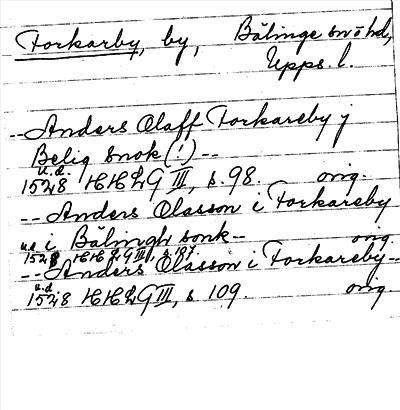 Forkarby, by, Bälinge sn o hd,
Upps. l.
-- Anders Olaff Forkareby j
Belig snok (!) --
u.d.
1528 HH LG III, s. 98. orig.
-- Anders Olasson i Forkareby
i Bälingh sonk -- orig.
u.d.
1528 HH LG III, s. 107.
-- Anders Olasson i Forkareby --
u.d.
1528 HH LG III, s. 109. orig.